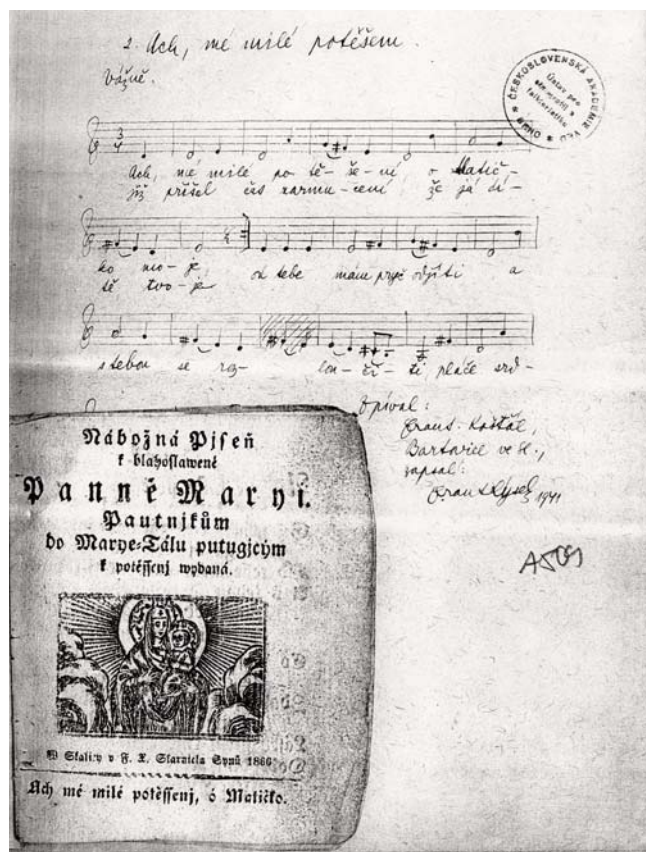 2. Ach, mé milé potěšení.
Vážně.
ČESKOSLOVENSKÁ AKADEMIE VĚD
Ústav pro
etnografii a
folkloristiku
BRNO
3
4
Ach, mé milé po-tě-še-ní, o Matič-
již přišel čas zarmu-cení že já dí-
ko mo-je, od tebe mám pryč odjíti a
tě tvo-je
s tebou se roz- lou-či-ti, pláče srd-
Zpíval:
Frant. Košťál,
Bartovice ve Sl.,
zapsal:
Frant. Lýsek 1941
Nábožná Pjseň
k blahoslawené
Panně Maryi.
Pautnjkům
do Marye-Tálu putugjcým
k potěssenj wydaná.
W Skalicy v F. X. Skarnicla Synů 1860
Ach mé milé potěssenj, ó Matičko.